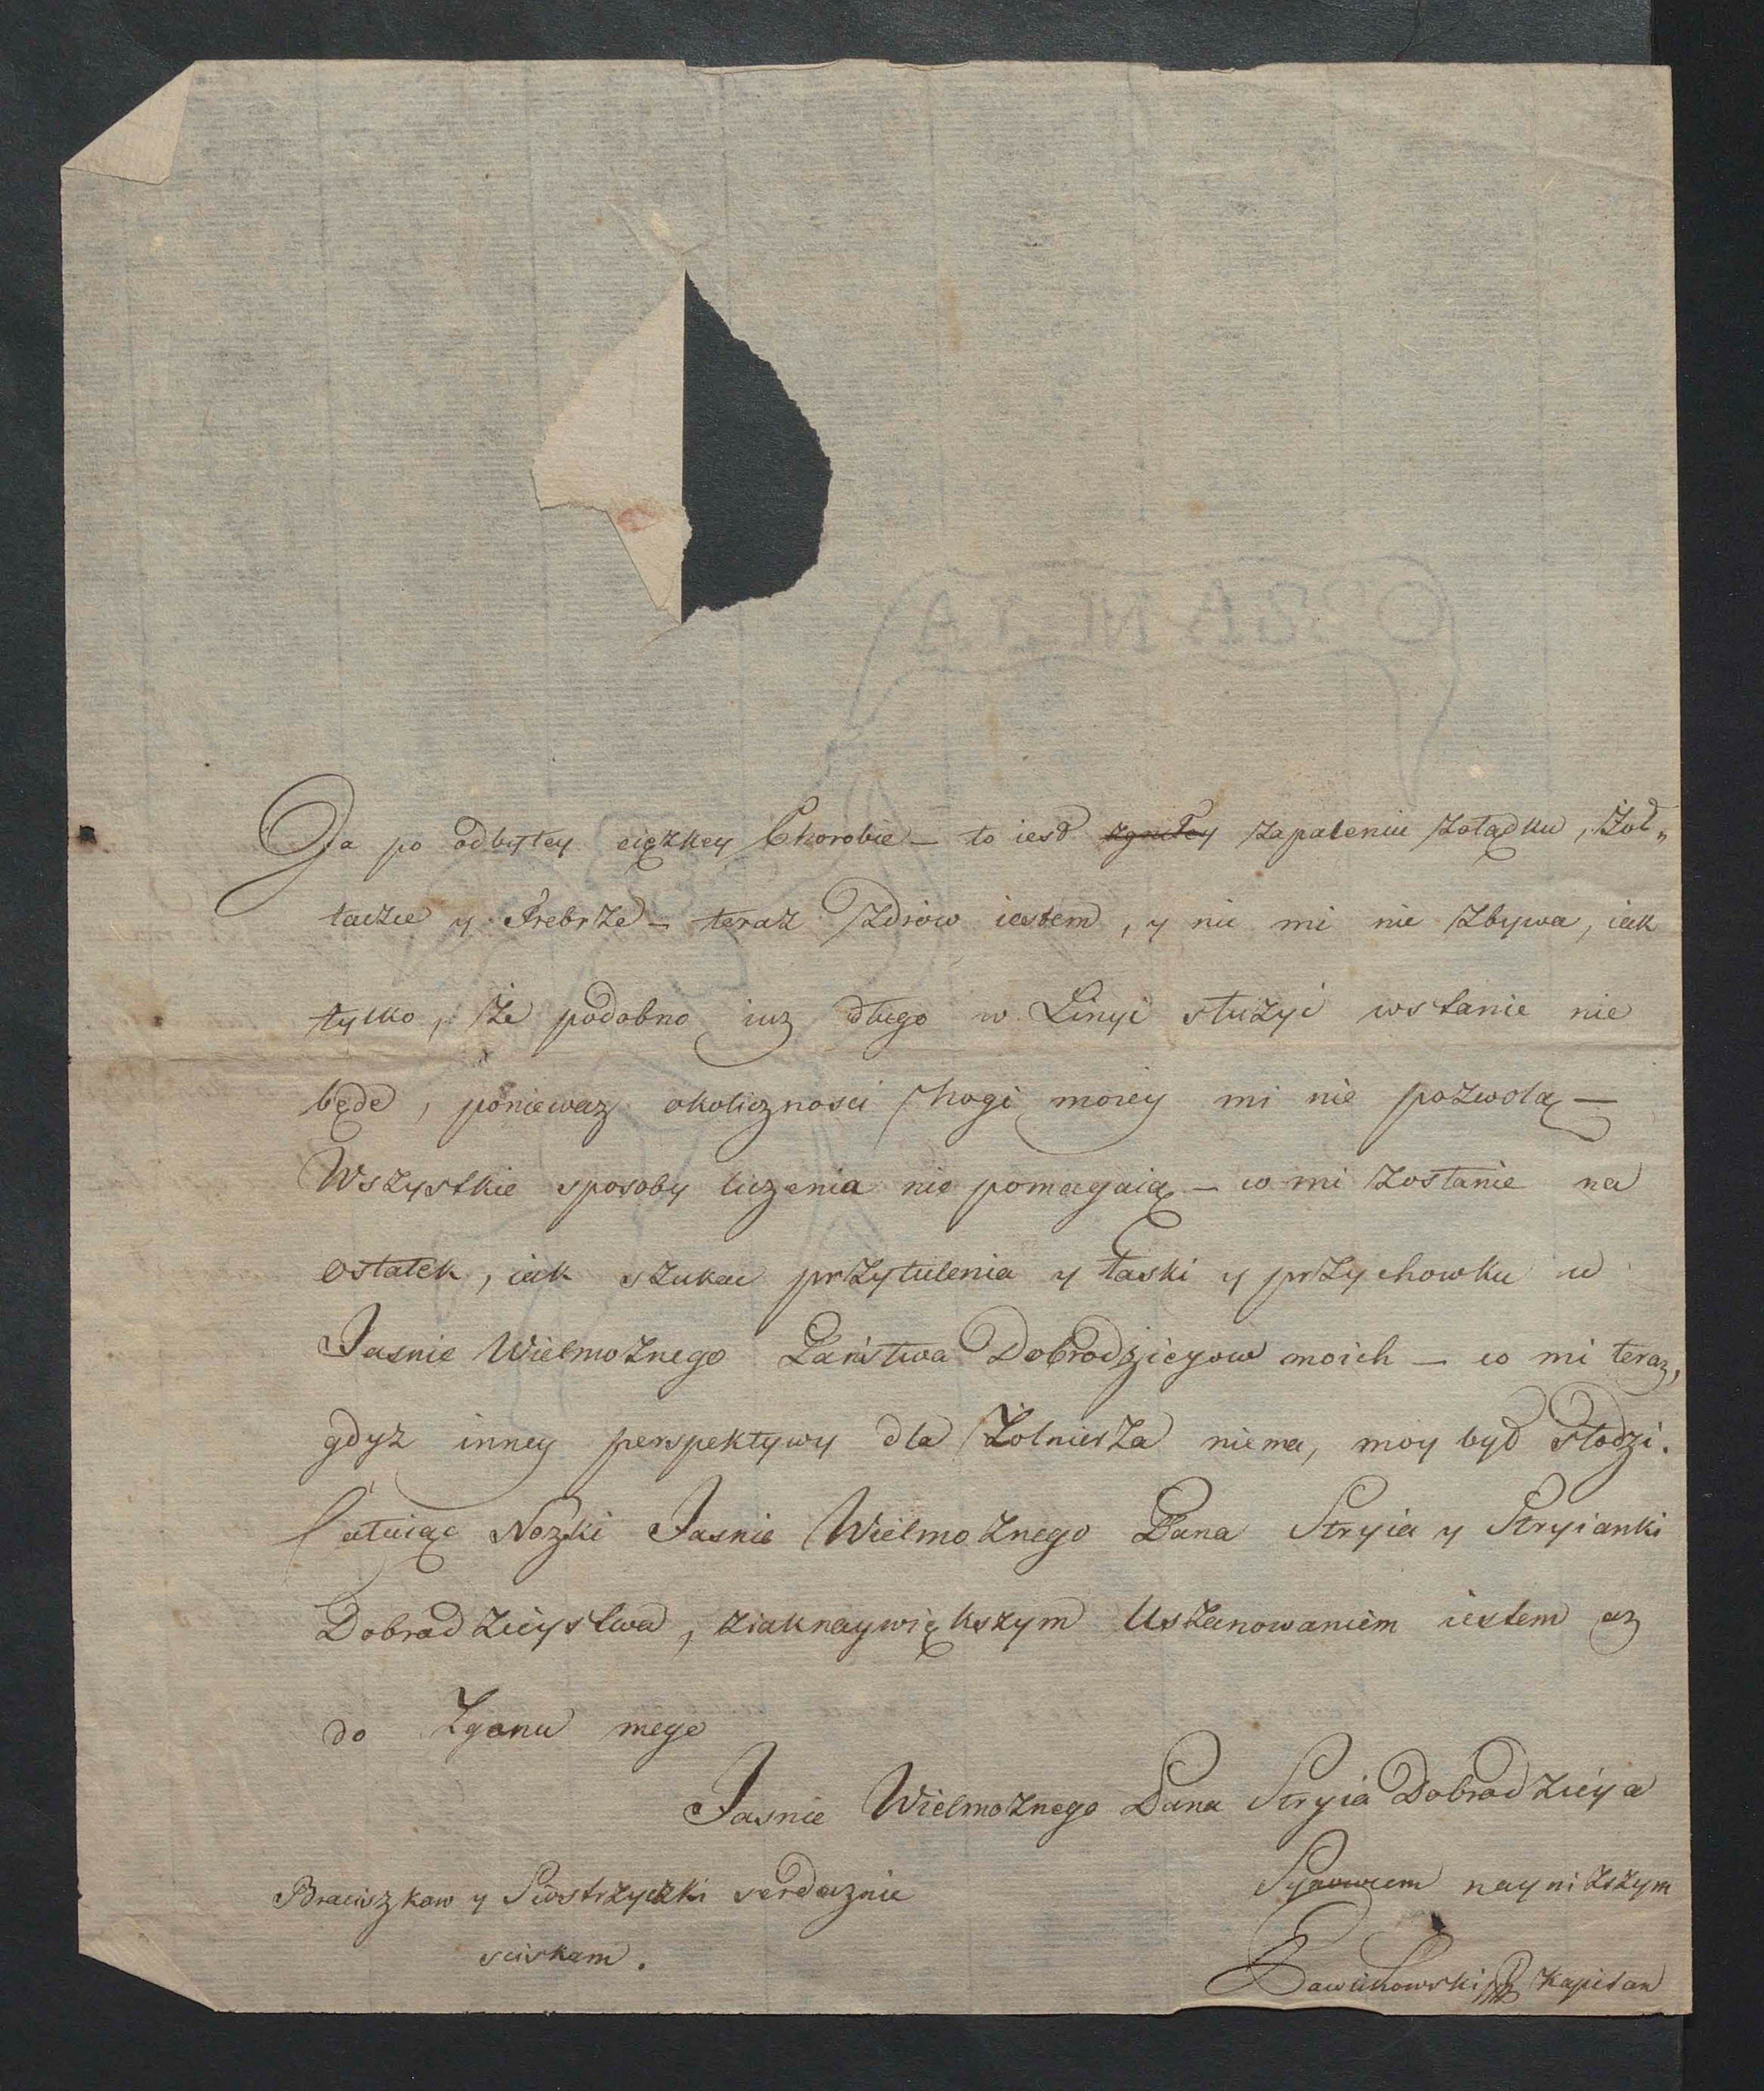 Ja po odbytey ciężkey Chorobie – to iest zgniłey zapaleniu żołądku, Żoł„
taczce y Frebrze – teraz Zdrów iestem, y nic mi nie Zbywa, iak
tylko, że podobno iuz długo w Linyi służyć wstanie nie
będe, poniewaz okolicznosci nogi moiey mi nie pozwolą –
Wszystkie sposoby liczenia nie pomagaią – co mi zostanie na
ostatek, iak szukac przytulenia y łaski y przychowku u
Jasnie Wielmoznego Państwa Dobrodzieyow moich – co mi teraz,
gdyz inney perspektywy dla Żolnierza niema, moy byt słodzi.
Całuiąc Nozki Jasnie Wielmoznego Pana Stryia y Stryianki
Dobrodzieystwa, ziaknaywiększym Uszanowaniem iestem az
do Zgonu mego
Jasnie Wielmoznego Pana Stryia Dobrodzieya
Synowcem nayniższym
Braciszkow y Siostrzyczki serdecznie
sciskam.
Kapitan